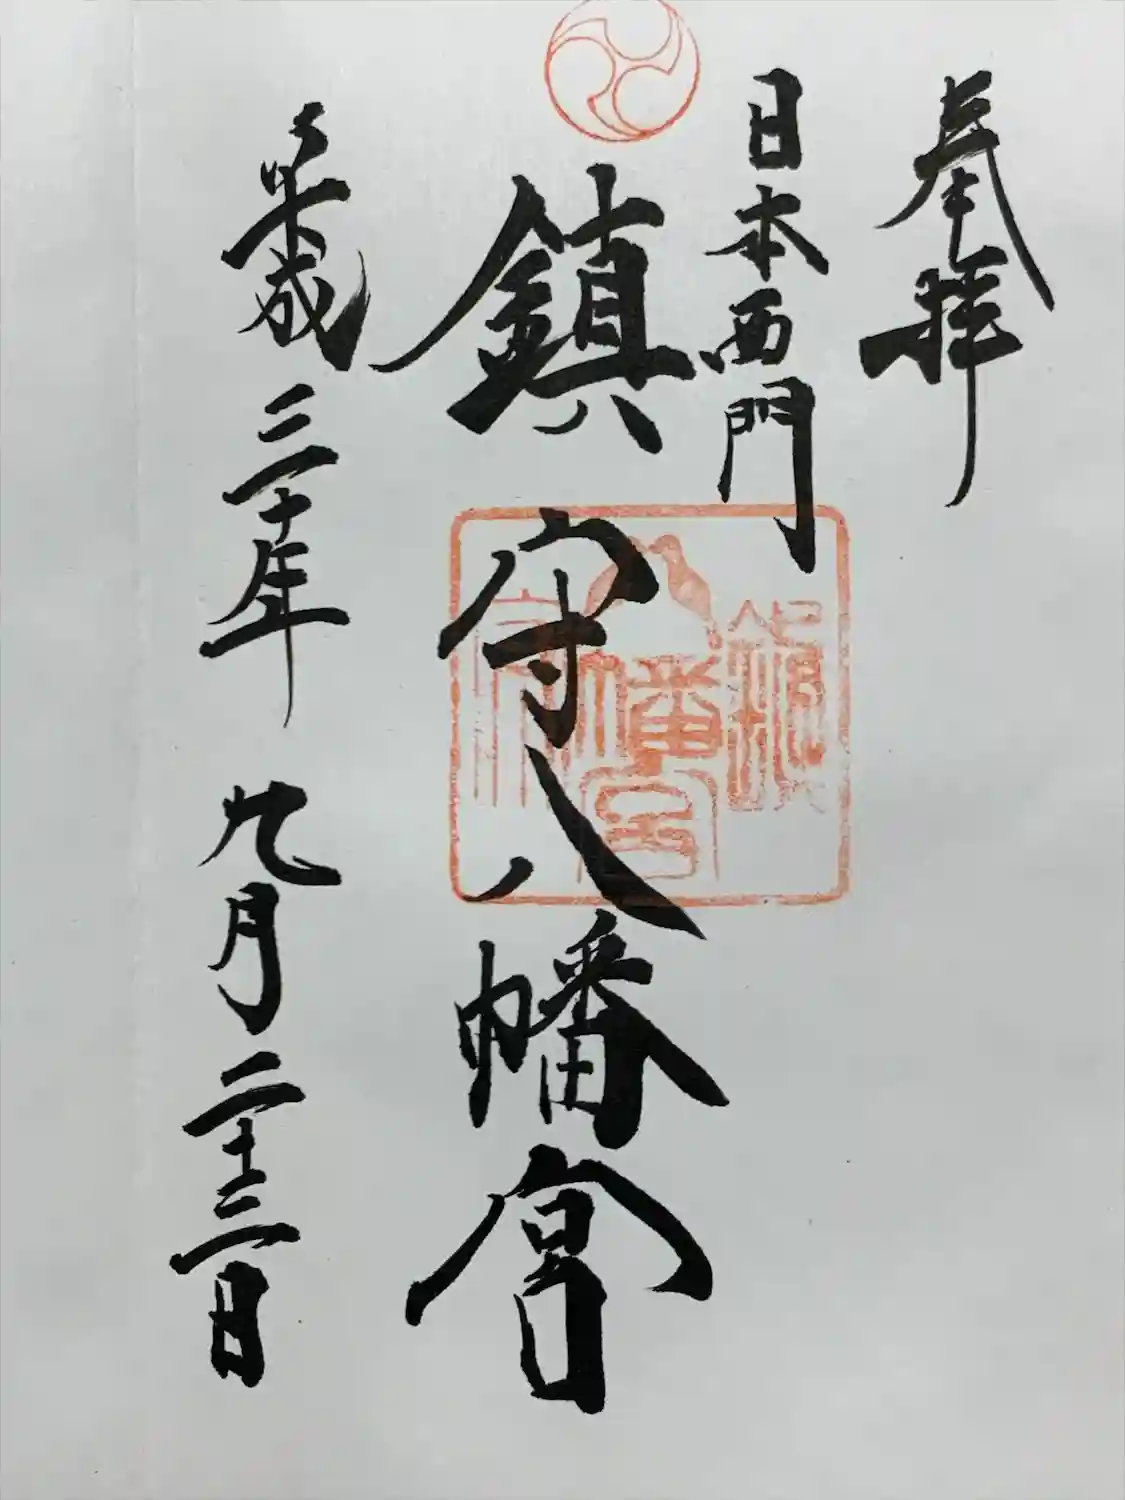 奉拝
日本西門
鎮守八幡宮
平成三十年九月二十三日
鎮
八幡宮
守